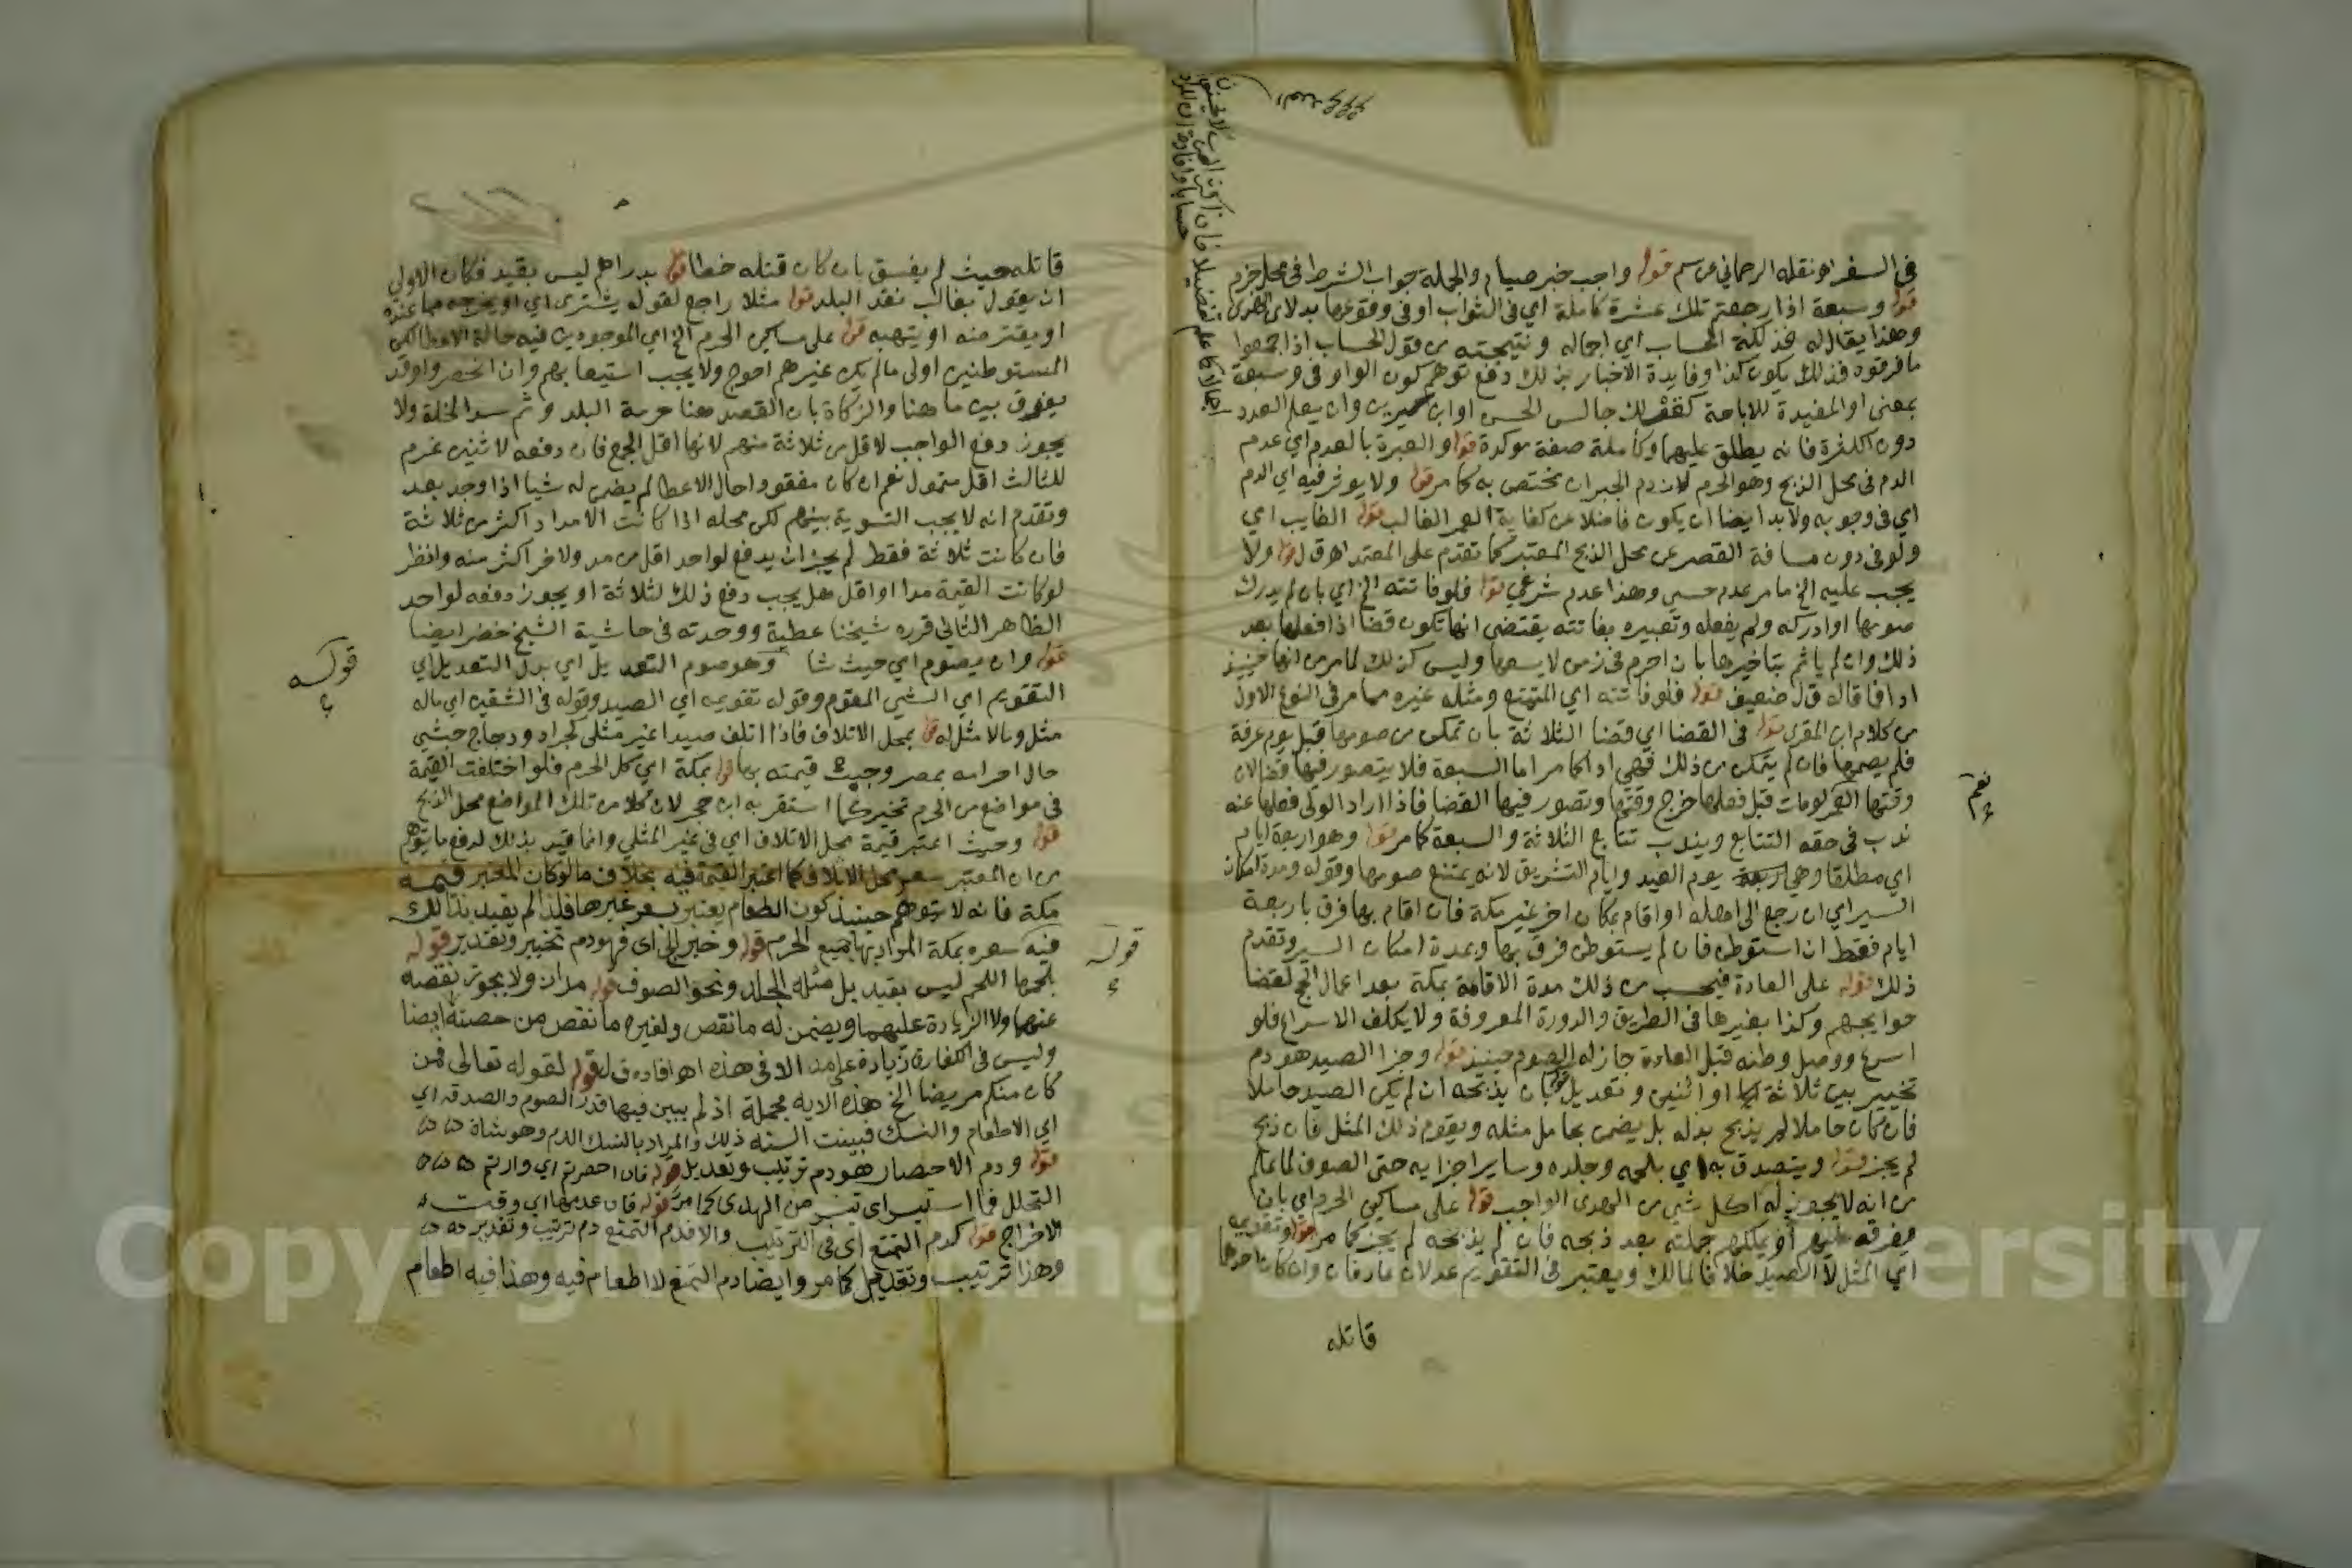 في السفر اهو نقله الرحماني عن سم قوله واجب خبر صيام والجملة جواب الشرط في محل جزم
قوله وسبعة اذا رجعتم تلك عشرة كاملة اي في الثواب او في وقوعها بدلا عن الهدي
وهذا يقال له فذلكة الحساب اي اجماله ونتيجته من قول الحساب اذا جمعوا
ما فرقوه فذلك يكون كذا وفايدة الاخبار بذلك دفع توهم كون الواو في وسبعة
بمعنى او المفيدة للاباحة كقولك جالس الحسن او ابن سيرين وان يعلم العدد
دون الكثرة فانه يطلق عليهما وكاملة صفة موكدة قوله والعبرة بالعدم اي عدم
الدم في محل الذبح وهو الحرم لان دم الجبران مختص به كما مر قوله ولا يوثر فيه اي الدم
اي في وجوبه ولابد ايضا ان يكون فاضلا عن كفاية العمر الغالب قوله الغايب اي
ولو في دون مسافة القصر عن محل الذبح المعتبر كما تقدم على المعتمد اهـ ق ل قوله ولا
يجب عليه الخ ما مر عدم حسي وهذا عدم شرعي قوله فلو فاتته الخ اي بان لم يدرك
صومها او ادركه ولم يفعله وتعبيره بفاتته يقتضي انها تكون قضا اذا فعلها بعد
ذلك وان لم ياثم بتاخيرها بان احرم في زمن لا يسعها وليس كذلك لما مر من انها حينيذ
ادا فما قاله ق ل ضعيف قوله فلو فاتته اي المتمتع ومثله غيره مما مر في النوع الاول
من كلام ابن المقري قوله في القضا اي قضا الثلاثة بان تمكن من صومها قبل يوم عرفة
فلم يصمها فان لم يتمكن من ذلك فهي ادا كما مر اما السبعة فلا يتصور فيها قضا لان
وقتها العمر لو مات قبل فعلها خرج وقتها وتصور فيها القضا فاذا اراد الولي فعلها عنه
ندب في حقه التتابع ويندب تتابع الثلاثة والسبعة كما مر قوله وهو اربعة ايام
اي مطلقا وهي يوم العيد وايام التشريق لانه يمتنع صومها وقوله ومدة امكان
السير اي ان رجع الى اهله او اقام بمكان اخر غير مكة فان اقام بها فرق باربعة
ايام فقط ان استوطن فان لم يستوطن فرق بها وبمدة امكان السير وتقدم
ذلك قوله على العادة فيحسب من ذلك مدة الاقامة بمكة بعد اعمال الحج لقضا
حوايجهم وكذا بغيرها في الطريق والدورة المعروفة ولا يكلف الاسراع فلو
اسرع ووصل وطنه قبل العادة جاز له الصوم حينيذ قوله وجزا الصيد هو دم
تخيير بين ثلاثة او اثنين وتعديل قوله بان يذبحه ان لم يكن الصيد حاملا
فان كان حاملا لم يذبح بدله بل يضمن بحامل مثله ويقوم ذلك المثل فان ذبح
لم يجز قوله ويتصدق به اي بلحمه وجلده وساير اجزايه حتى الصوف لما علم
من انه لا يجوز له اكل شي من الهدي الواجب قوله على مساكين الحرم اي بان
يفرقه عليهم او يملكهم جملته بعد ذبحه فان لم يذبحه لم يجز كما مر قوله وتقويمه
اي المثل لا الصيد خلافا لمالك ويعتبر في التقويم عدلان عارفان وان كان احدهما
قاتله
نعم
قاتله حيث لم يفسق بان كان قتله خطا قوله بدراهم ليس بقيد فكان الاولى
ان يقول بغالب نقد البلد قوله مثلا راجع لقوله يشتري اي او يخرجه مما عنده
او يقترضه او يتهبه قوله على مساكين الحرم الخ اي الموجودين فيه حالة الاعطا لكن
المستوطنين اولى ما لم يكن غيرهم احوج ولا يجب استيعابهم وان انحصروا وقد
يفرق بين ما هنا والزكاة بان القصد هنا حرمة البلد وثم سد الخلة ولا
يجوز دفع الواجب لاقل من ثلاثة منهم لانها اقل الجمع فان دفعه لاثنين غرم
للثالث اقل متمول نعم ان كان مفقودا حال الاعطا لم يضمن له شيا اذا وجد بعد
وتقدم انه لا يجب التسوية بينهم لكن محله اذا كانت الامداد اكثر من ثلاثة
فان كانت ثلاثة فقط لم يجز ان يدفع لواحد اقل من مد ولاخر اكثر منه وانظر
لو كانت القيمة مدا او اقل هل يجب دفع ذلك لثلاثة او يجوز دفعه لواحد
الظاهر الثاني قرره شيخنا عطية ووجدته في حاشية الشيخ خضر ايضا
قوله وان يصوم اي حيث شا وهو صوم التعديل اي بدل التعديل اي
التقويم اي الشي المقوم وقوله تقويمه اي الصيد وقوله في الشقين اي ماله
مثل وما لا مثل له قوله بمحل الاتلاف فاذا اتلف صيدا غير مثلي كجراد ودجاج حبشي
حال احرامه بمصر وجبت قيمته بها قوله بمكة اي كل الحرم فلو اختلفت القيمة
في مواضع من الحرم تخير كما استقر به ابن حجر لان كلا من تلك المواضع محل الذبح
قوله وحيث اعتبر قيمة محل الاتلاف اي في غير المثلي وانما قيد بذلك لدفع ما يتوهم
من ان المعتبر سعر محل الاتلاف كما اعتبر القيمة فيه بخلاف ما لو كان المعتبر قيمة
مكة فانه لا يتوهم حينيذ كون الطعام يعتبر بسعر غيرها فلذا لم يقيد بذلك
فيه سعره بمكة المراد بها جميع الحرم قوله وخير الخ اي فهو دم تخيير وتقدير قوله
بلحمها اللحم ليس بقيد بل مثله الجلد ونحو الصوف قوله مدان ولا يجوز نقصه
عنهما ولا الزيادة عليهما ويضمن له ما نقص ولغيره ما نقص من حصته ايضا
وليس في الكفارة زيادة على مد الا في هذه اهـ افاده ق ل قوله لقوله تعالى فمن
كان منكم مريضا الخ هذه الاية مجملة اذ لم يبين فيها قدر الصوم والصدقة اي
اي الاطعام والنسك فبينت السنة ذلك والمراد بالنسك الدم وهو شاة
قوله ودم الاحصار هو دم ترتيب وتعديل قوله فان احصرتم اي واردتم
التحلل فما استيسر اي تيسر من الهدي كما مر قوله فان عدمها اي وقت
الاخراج قوله كدم التمتع اي في الترتيب والا فدم التمتع دم ترتيب وتقدير
وهذا ترتيب وتعديل كما مر وايضا دم التمتع لا اطعام فيه وهذا فيه اطعام
قوله
قوله
Copyright © King Saud University